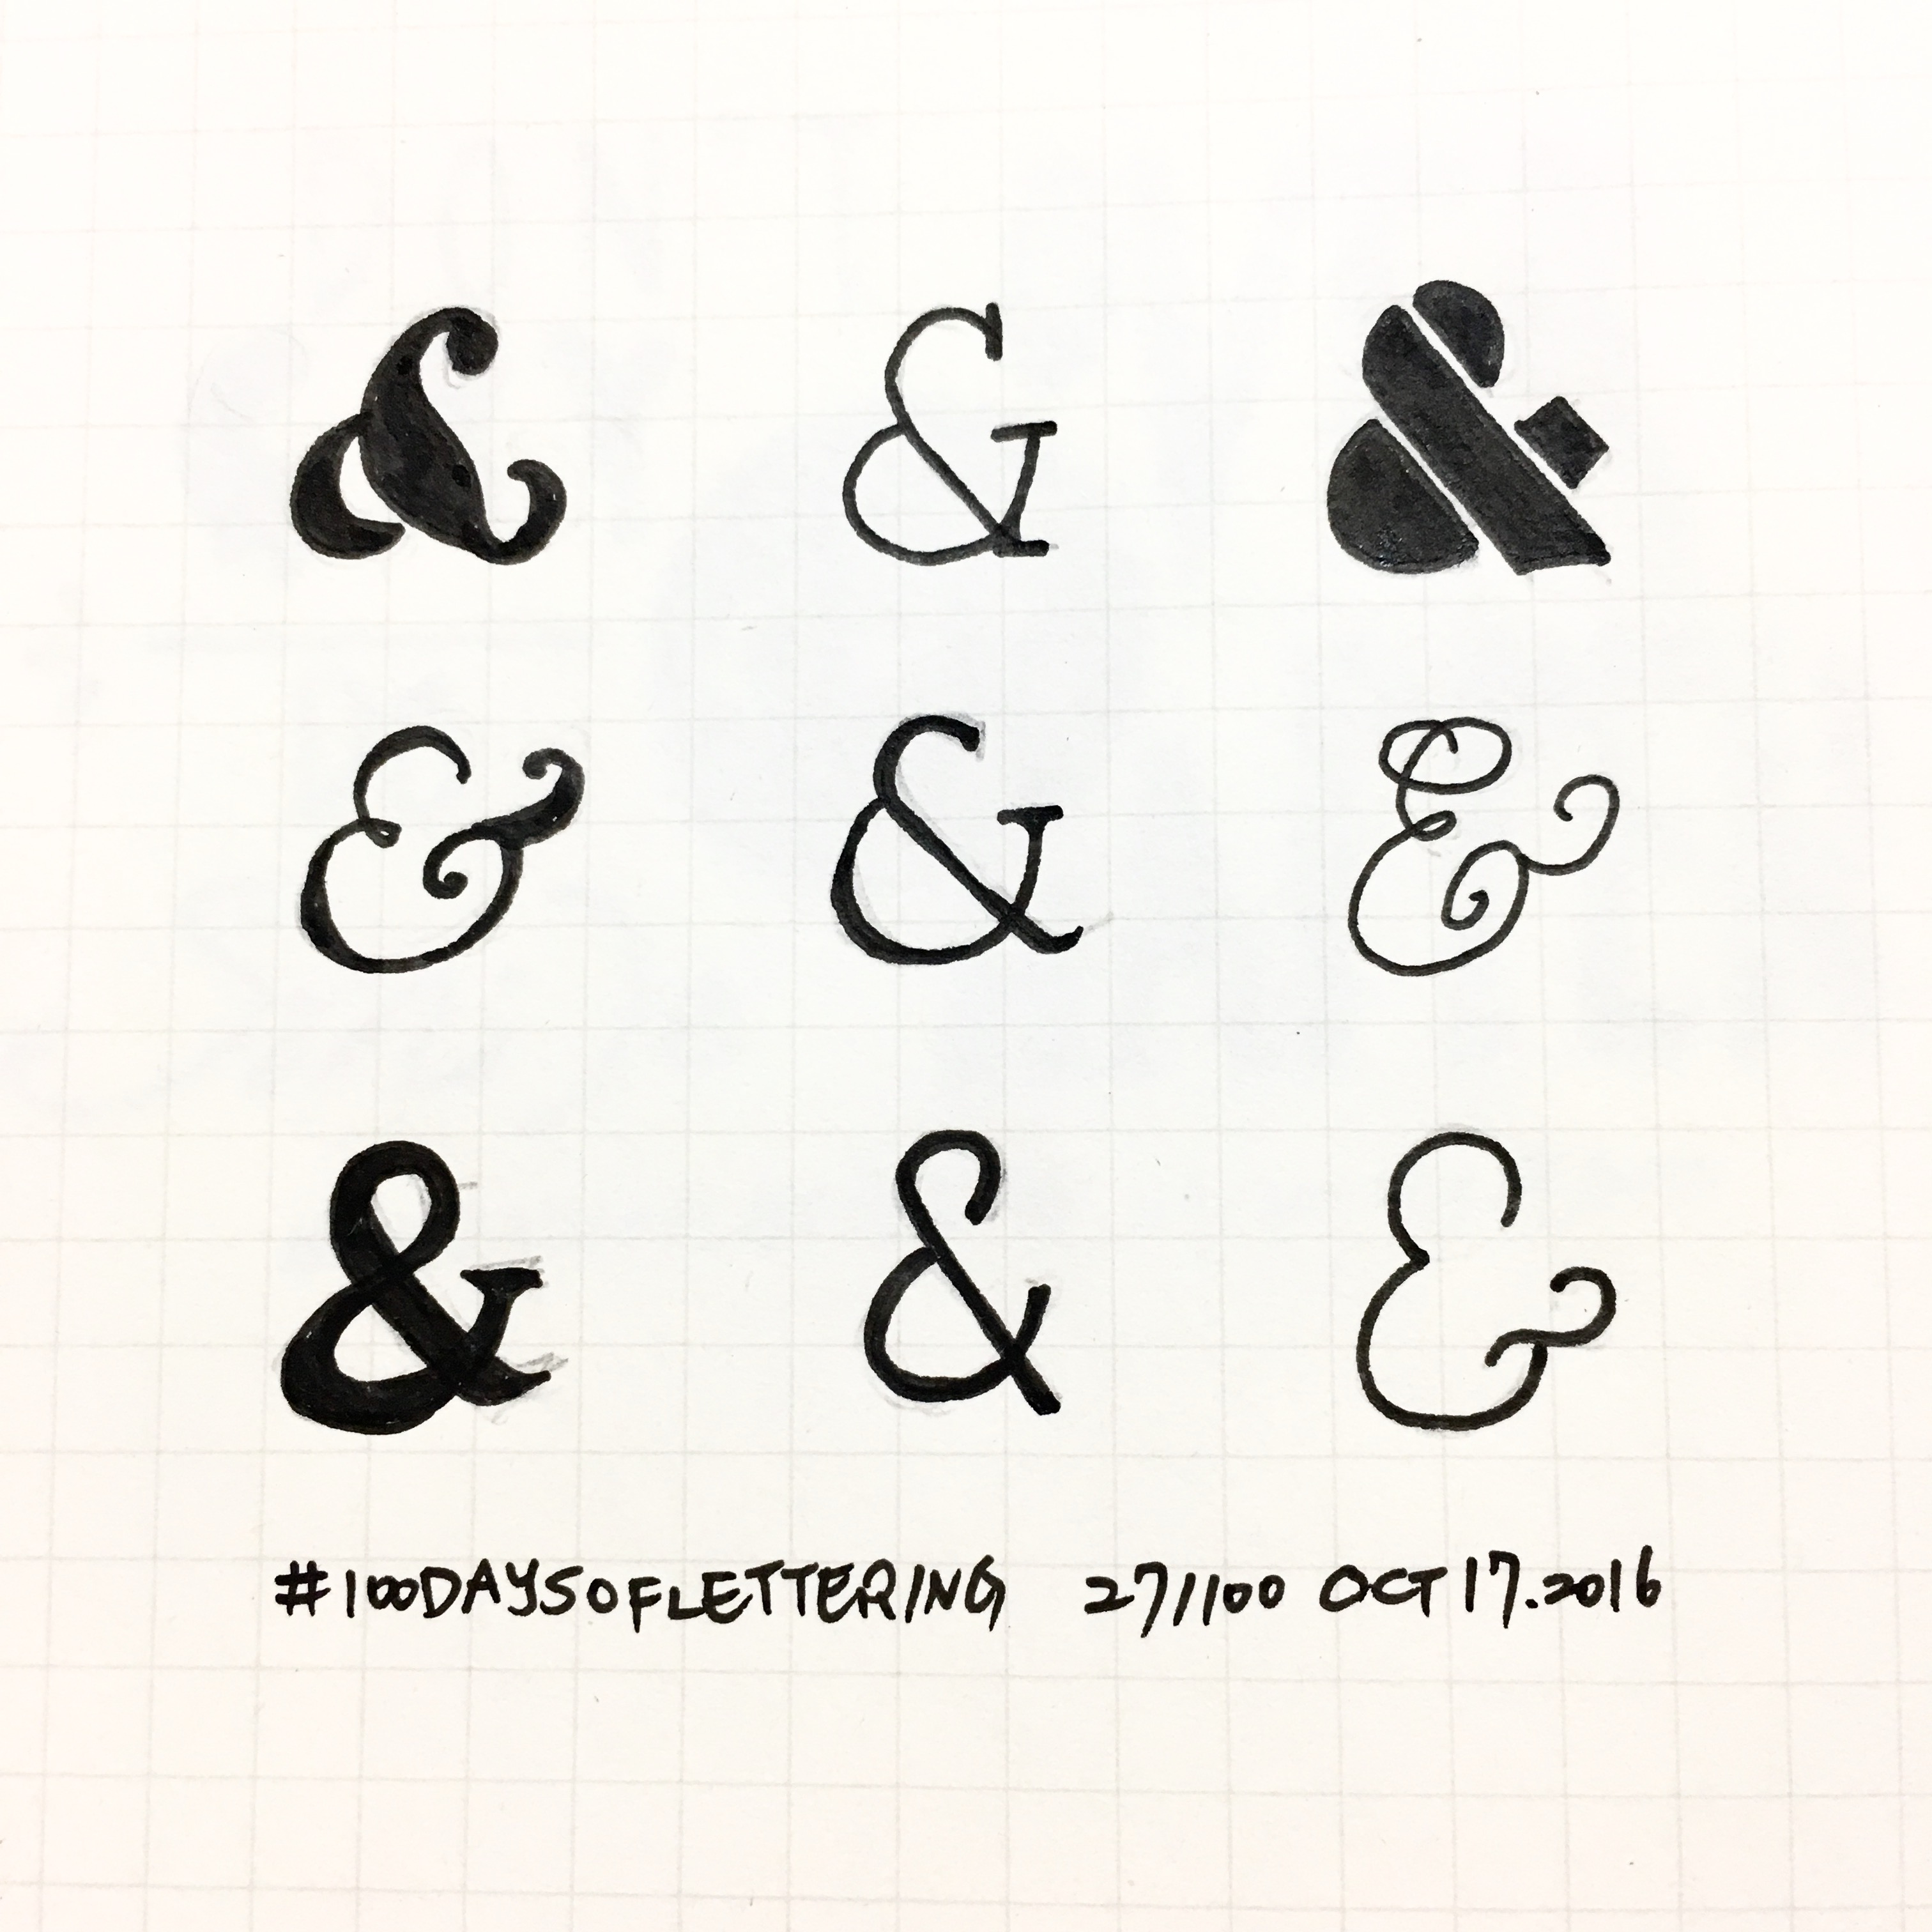 & & &
& & &
& & &
#100DAYSOFLETTERING 27/100 OCT 17.2016